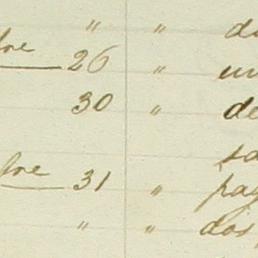 " " do
bre 26 " un
30 " de
sa
bre 31 " pag
" " dos